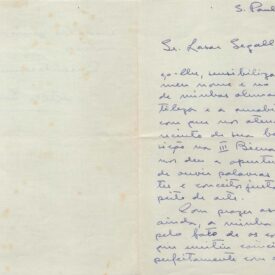 S. Paul
Sr. Lasar Segall
ço-lhe, sensibiliza
meu nome e no
de minhas alunas
com que nos aten
recinto de sua
sição na III Biena
nos deu a oportun
de ouvir palavras
tes e conceitos justo
peito de arte.
Com prazer
ainda, a minha
pelo fato de os co
que emitiu coinci
perfeitamente com